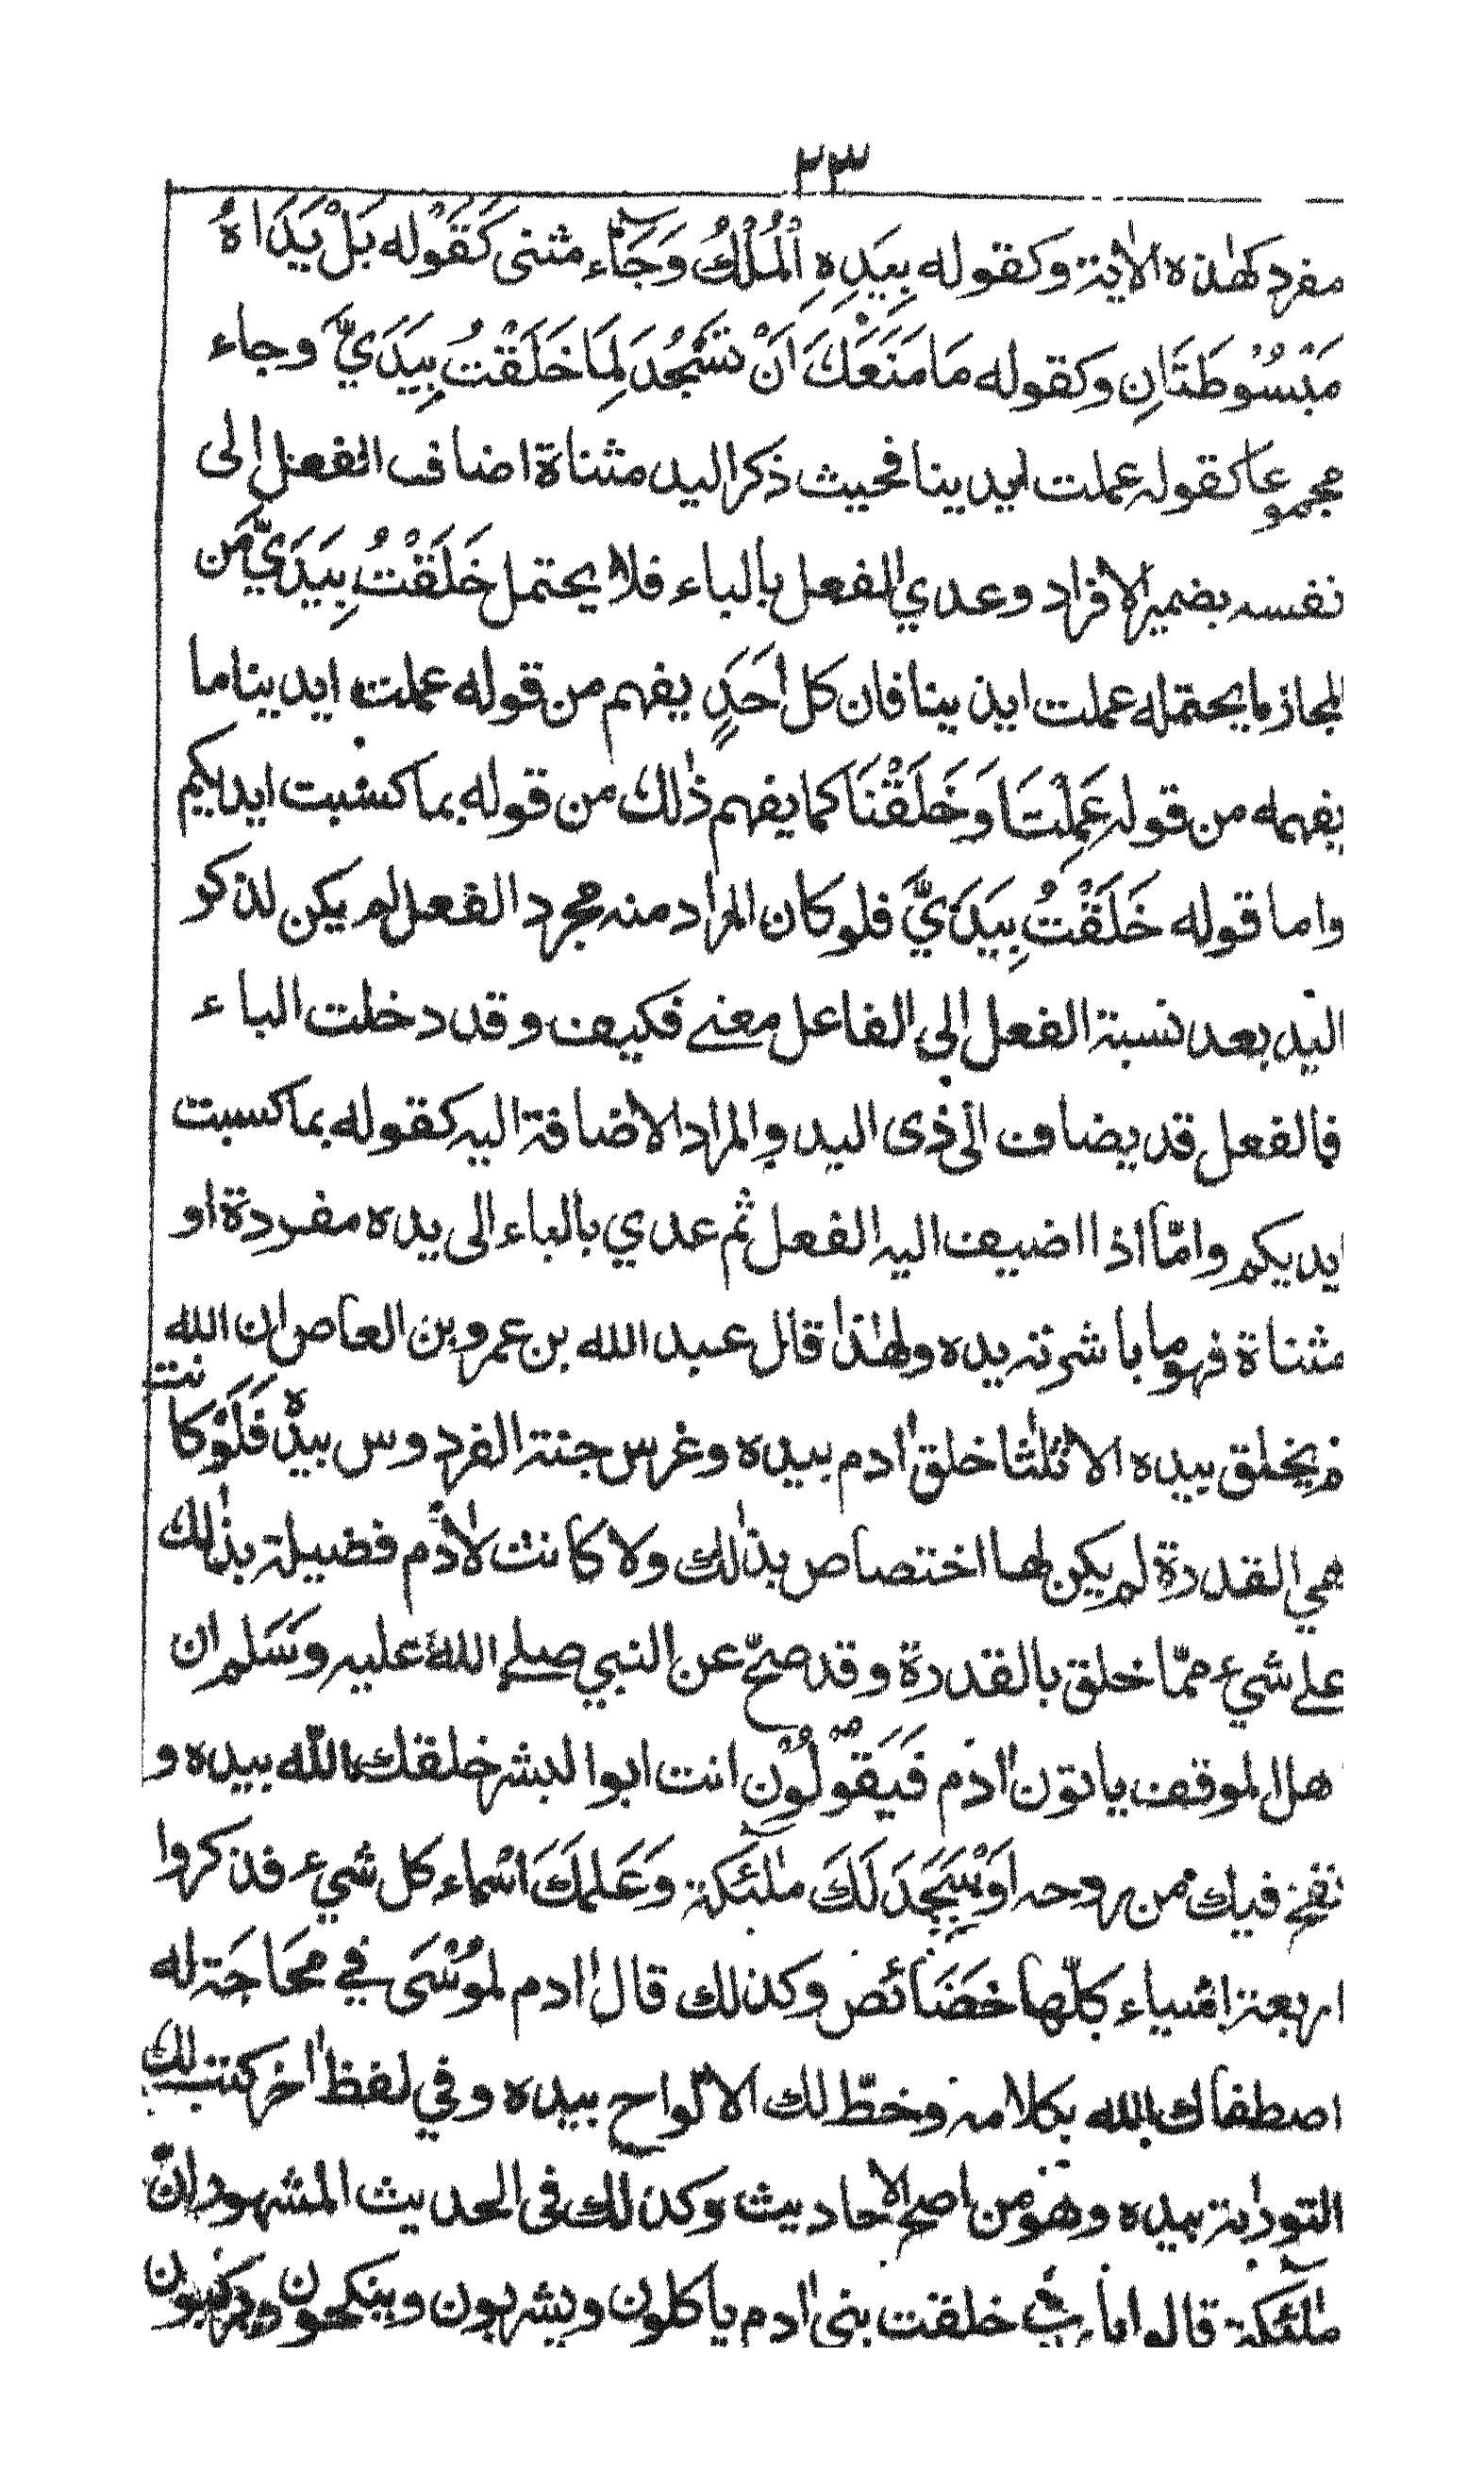 ٢٣
مفرد كهٰذه الاٰية وكقوله بِيَدِهِ اْلمُلْكُ وَجَآء مثنى كَقَوْله بَلْ يَدَاهُ
مَبْسُوْطَتَانِ وكقوله مَا مَنَعَكَ اَنْ تَسْجُدَ لِمَا خَلَقْتُ بِيَدَيَّ وجاء
مجموعا كقوله عملت ايدينا فحيث ذكر اليد مثناة اضاف الفعل الى
نفسه بضمير الافراد وعدي الفعل بالباء فلا يحتمل خَلَقْتُ بِيَدَيَّ من
المجاز ما يحتمله عملت ايدينا فان كل اَحَدٍ يفهم من قوله عملت ايدينا ما
يفهمه من قوله عَمِلْتَا وَخَلَقْنَا كما يفهم ذٰلك من قوله بما كسبت ايديكم
واما قوله خَلَقْتُ بِيَدَيَّ فلو كان المراد منه مجرد الفعل لم يكن لذكر
اليد بعد نسبة الفعل الى الفاعل معنے فكيف وقد دخلت الباء
فالفعل قد يضاف الى ذى اليد والمراد الاضافة اليه كقوله بما كسبت
ايديكم وامّا اذا اضيف اليه الفعل ثم عدي بالباء الى يده مفردة او
مثناة فهو ما باشرته يده ولهٰذا قال عبد الله بن عمرو بن العاص ان الله
لم يخلق بيده الا ثلٰثا خلق اٰدم بيده وغرس جنة الفردوس بيده فَلَوْ كانت
هي القدرة لم يكن لها اختصاص بذٰلك ولا كانت لاٰدم فضيلة بذٰلك
علے شيء ممّا خلق بالقدرة وقد صحّ عن النبي صلے اللهُ عليه وسَلم ان
هل الموقف ياتون اٰدم فَيَقُوْلُوْن انت ابوا لبشر خلقك الله بيده و
نفخ فيك من روحه اوَسْجَدَ لَكَ ملٰئكة وَعَلمكَ اسْماء كل شيء فذكروا
اربعة اشياء كلّها خصَائص وكذلك قال اٰدم لموْسَى في محَاجَته له
اصطفاك الله بكلامه وخطّ لك الالواح بيده وفي لفظ اٰخر كتب لك
التورٰية بيده وهو من اصح الاحاديث وكذلك فى الحديث المشهور انّ
ملٰئكة قالوا يا رب خلقت بنى اٰدم ياكلون ويشربون وينكحون ويركبون